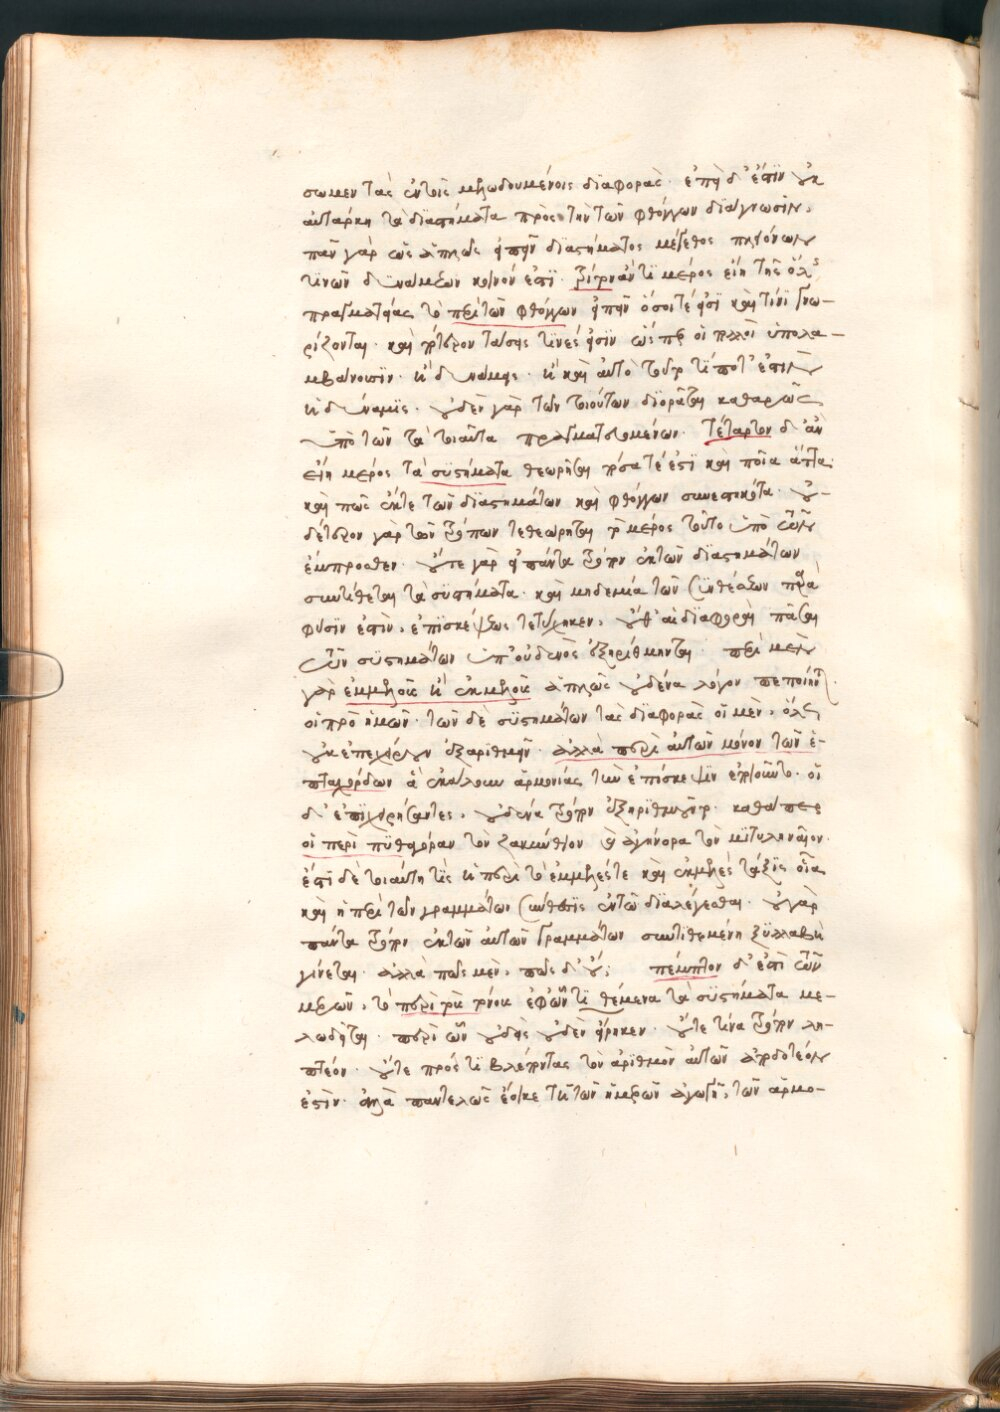 σωμεν τὰς ἐν τοῖς μελῳδουμένοις διαφοράς. ἐπεὶ δ' ἐστὶν οὐκ
αὐτάρκη τὰ διαστήματα πρὸς τὴν τῶν φθόγγων διάγνωσιν,
πᾶν γὰρ ὡς ἁπλῶς εἰπεῖν διαστήματος μέγεθος πλειόνων
τινῶν δυνάμεων κοινόν ἐστι. τρίτον ἄν τι μέρος εἴη τῆς ὅλης
πραγματείας τὸ περὶ τῶν φθόγγων εἰπεῖν ὅσοι τέ εἰσι καὶ τίνι γνω-
ρίζονται. καὶ πότερον τάσεις τινές εἰσιν ὥσπερ οἱ πολλοὶ ὑπολα-
μβάνουσιν. ἢ δυνάμεις. ἢ καὶ αὐτὸ τοῦτο τί ποτ' ἐστὶν
ἡ δύναμις. οὐδὲν γὰρ τῶν τοιούτων διορᾶται καθαρῶς
ὑπὸ τῶν τὰ τοιαῦτα πραγματευομένων. τέταρτον δ' ἂν
εἴη μέρος τὰ συστήματα θεωρῆσαι πόσα τέ ἐστι καὶ ποῖα ἄττα.
καὶ πῶς ἔκ τε τῶν διαστημάτων καὶ φθόγγων συνεστηκότα. οὐ-
δέτερον γὰρ τῶν τρόπων τεθεώρηται τὸ μέρος τοῦτο ὑπὸ τῶν
ἔμπροσθεν. οὔτε γὰρ εἰ πάντα τρόπον ἐκ τῶν διαστημάτων
συντίθεται τὰ συστήματα. καὶ μηδεμία τῶν συνθέσεων παρὰ
φύσιν ἐστὶν, ἐπισκέψεως τετύχηκεν. οὔθ' αἱ διαφοραὶ πᾶσαι
τῶν συστημάτων ὑπ' οὐδενὸς ἐξηρίθμηνται. περὶ μὲν
γὰρ ἐμμελοῦς ἢ ἐκμελοῦς ἁπλῶς οὐδένα λόγον πεποίηνται
οἱ πρὸ ἡμῶν. τῶν δὲ συστημάτων τὰς διαφορὰς οἱ μὲν, ὅλως
οὐκ ἐπεχείρουν ἐξαριθμεῖν. ἀλλὰ περὶ αὐτῶν μόνον τῶν ἑ-
πταχόρδων ἃ ἐκάλουν ἁρμονίας τὴν ἐπίσκεψιν ἐποιοῦντο. οἱ
δ' ἐπιχειρήσαντες, οὐδένα τρόπον ἐξηριθμοῦντο. καθάπερ
οἱ περὶ πυθαγόραν τὸν ζακύνθιον καὶ ἀγήνορα τὸν μιτυληναῖον.
ἔστι δὲ τοιαύτη τις ἡ περὶ τὸ ἐμμελές τε καὶ ἐκμελὲς τάξις οἵα
καὶ ἡ περὶ τῶν γραμμάτων σύνθεσις ἐν τῷ διαλέγεσθαι. οὐ γὰρ
πάντα τρόπον ἐκ τῶν αὐτῶν γραμμάτων συντιθεμένη ξυλλαβὴ
γίνεται. ἀλλὰ πῶς μὲν, πῶς δ' οὔ. πέμπτον δ' ἐστὶ τῶν
μερῶν, τὸ περὶ τοὺς τόνους ἐφ' ὧν τιθέμενα τὰ συστήματα με-
λῳδεῖται. περὶ ὧν οὐδεὶς οὐδὲν εἴρηκεν. οὔτε τίνα τρόπον λη-
πτέον. οὔτε πρὸς τί βλέποντας τὸν ἀριθμὸν αὐτῶν ἀποδοτέον
ἐστίν. ἀλλὰ παντελῶς ἔοικε τῇ τῶν ἡμερῶν ἀγωγῇ, τῶν ἁρμο-